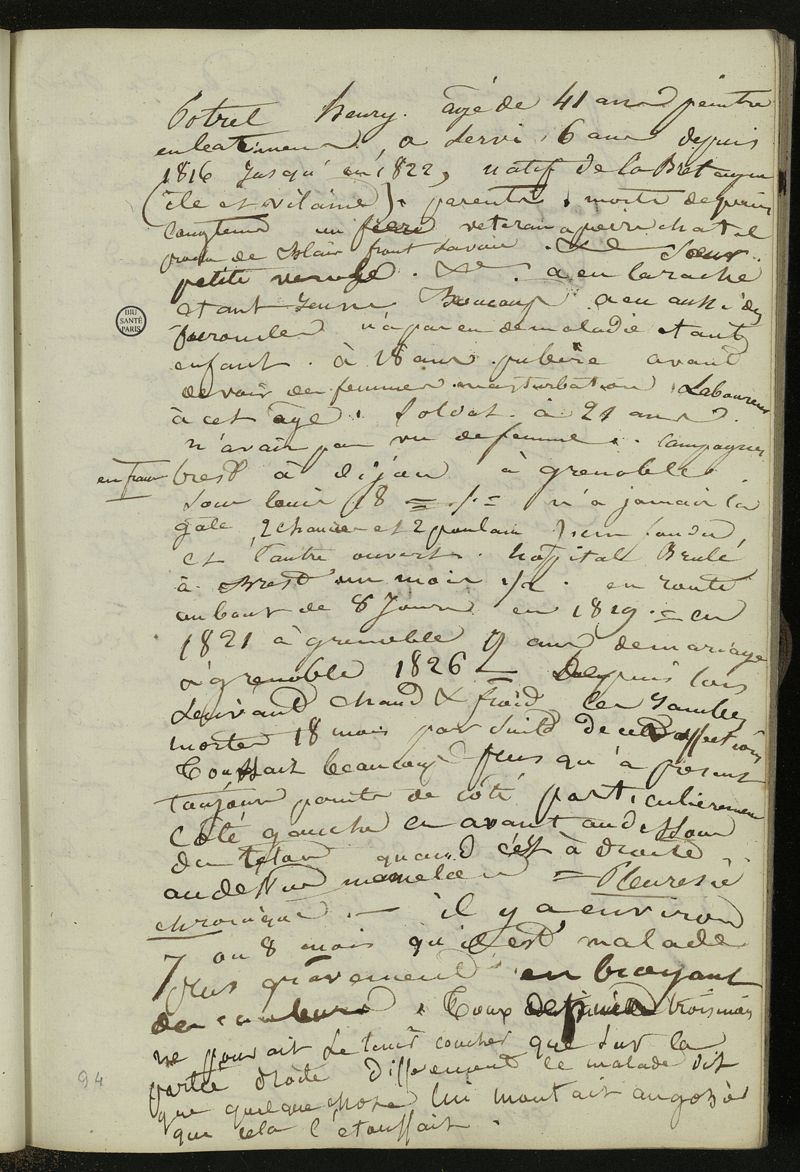 Potrel henry. agé de 41 ans peintre
en batiment, a servi 6 ans depuis
1816 Jusqu'en 1822, natif de la Bretagne
(ile et vilaine). parents morts depuis
longtems un frere veteran a pierre chatel
près de Blair front Savoie. Soeur
petite verole. a eu la rache
etant jeune Beaucoup a eu aussi des
furoncles n'a pas eu de maladie etant
enfant. à 18 ans pubère avant
de voir des femmes masturbation. Laboureur
à cet age. Soldat à 21 ans.
n'avait pas vu de femme. campagnes
en france
brest à dijon à grenoble.
Sous louis 18 = n'a jamais la
gale, 2 chancres et 2 poulains, un fondu,
et l'autre ouvert. hopital Brulé
à Brest un mois 1/2. en route
au bout de 8 Jours en 1819. = en
1821 à grenoble 9 ans de mariage
à grenoble 1826 Depuis lors
Souvent chaud & froid les Jambes
mortes 18 mois par Suite de ces affections
Toussait beaucoup plus qu'à présent
Toujours points de côté particulierement
côté gauche en avant au dessous
du teton quand c'est à droite
au dessus mamelon = Pleuresie
chronique. — il y a environ
7 ou 8 mois qu'il est malade
plus grâvement en broyant
des couleurs. Toux depuis trois mois
ne pouvait se tenir coucher que sur la
partie droite difficilement le malade dit
que quelque chose lui montait au gosier
que cela l'étouffait.
BIU
SANTÉ
PARIS
94